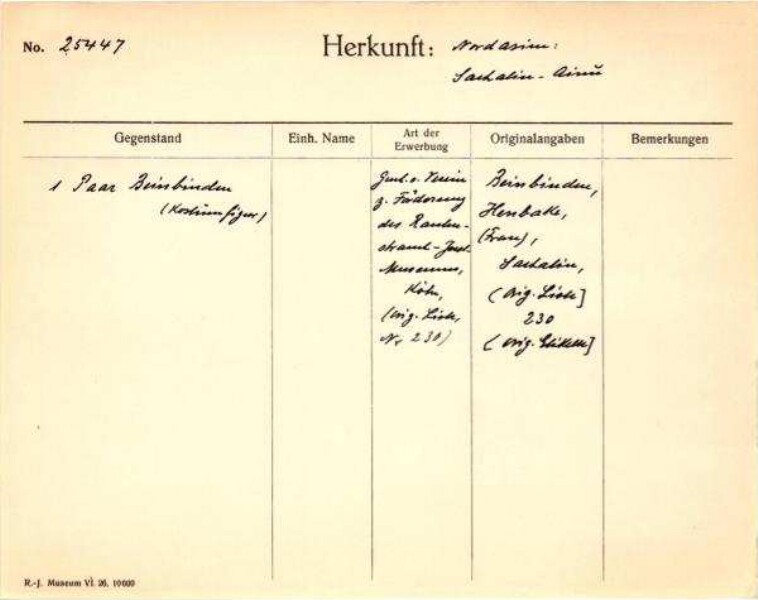 No. 25447
Herkunft: Nordasien:
Sachalin-Ainu
Gegenstand
Einh. Name
Art der
Erwerbung
Originalangaben
Bemerkungen
1 Paar Beinbinden
(Kostümfigur)
Gesch. v. Verein
z. Förderung
des Rauten-
strauch-Joest-
Museums,
Köln,
(Orig. Liste,
Nr 230)
Beinbinden,
Henbake,
(Frau),
Sachalin,
(Orig. Liste]
230
(Orig. Etikett]
R.-J. Museum VI. 26. 10000